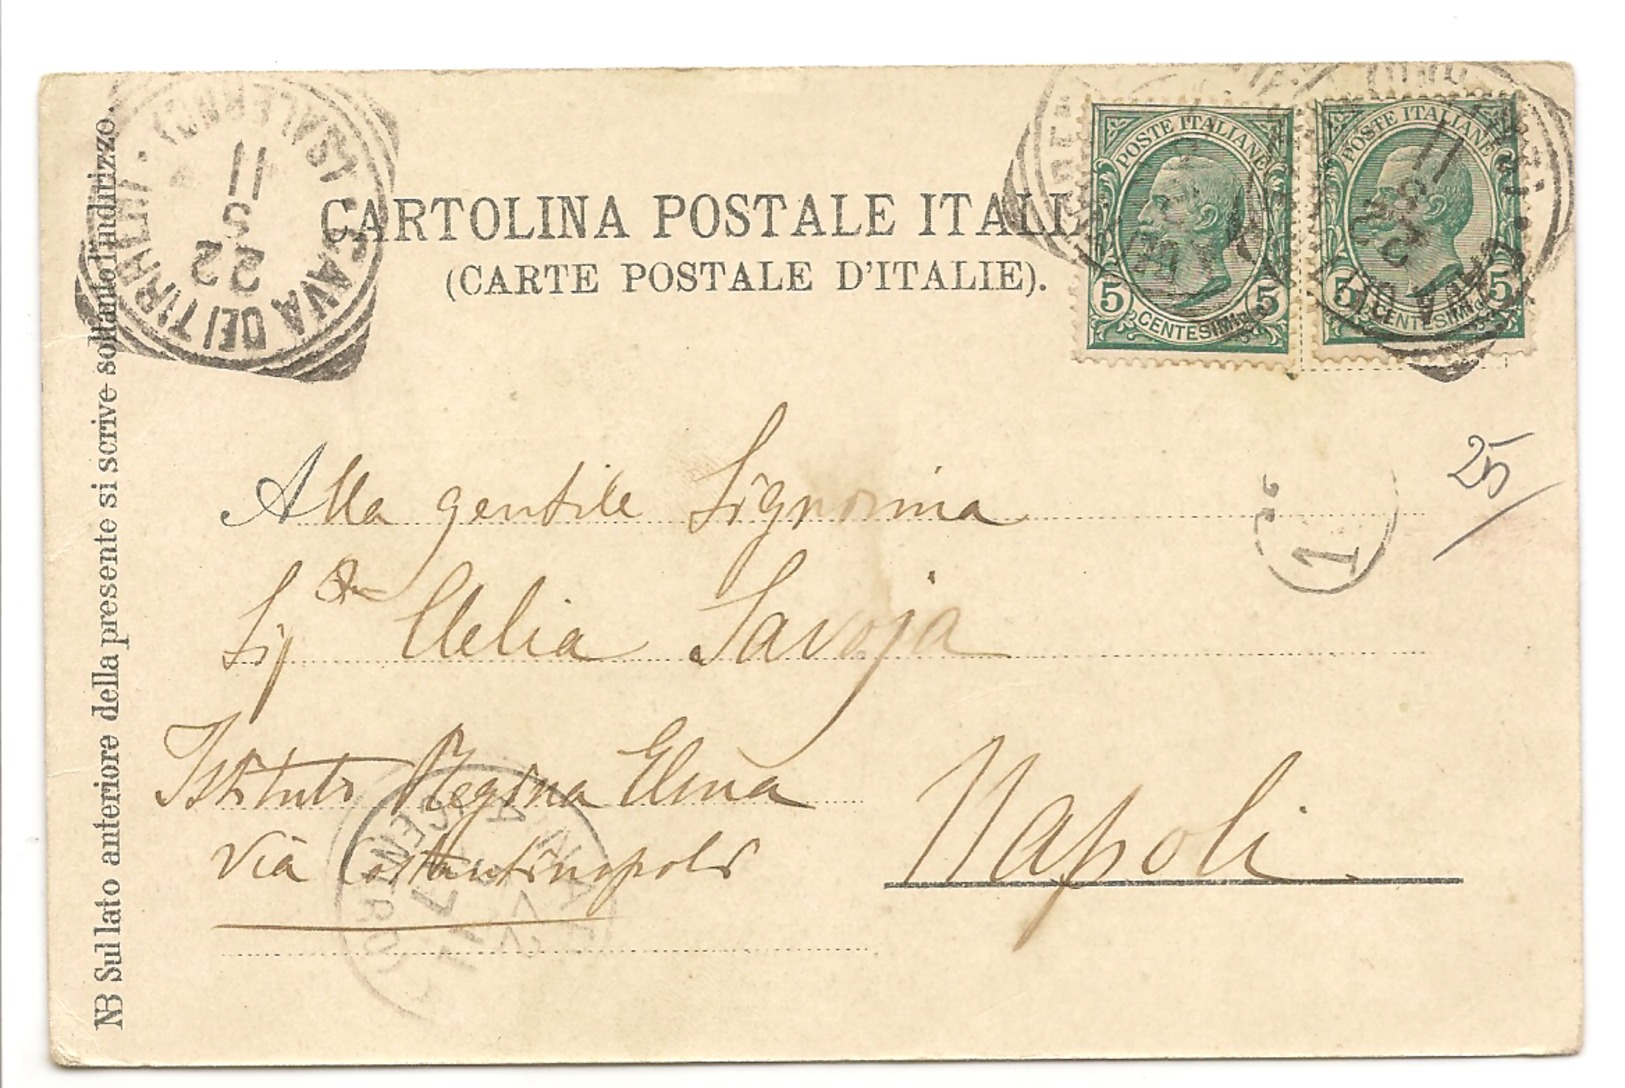 CARTOLINA POSTALE ITALI
(CARTE POSTALE D'ITALIE).
NB Sul lato anteriore della presente si scrive soltanto l'indirizzo.
CAVA DEI TIRRENI · (SALERNO)
22
5
11
POSTE ITALIANE
5 CENTESIMI 5
POSTE ITALIANE
5 CENTESIMI 5
25
1
Alla gentile Signorina
Sig.na Clelia Savoja
Istituto Regina Elena
Via Costantinopoli
Napoli